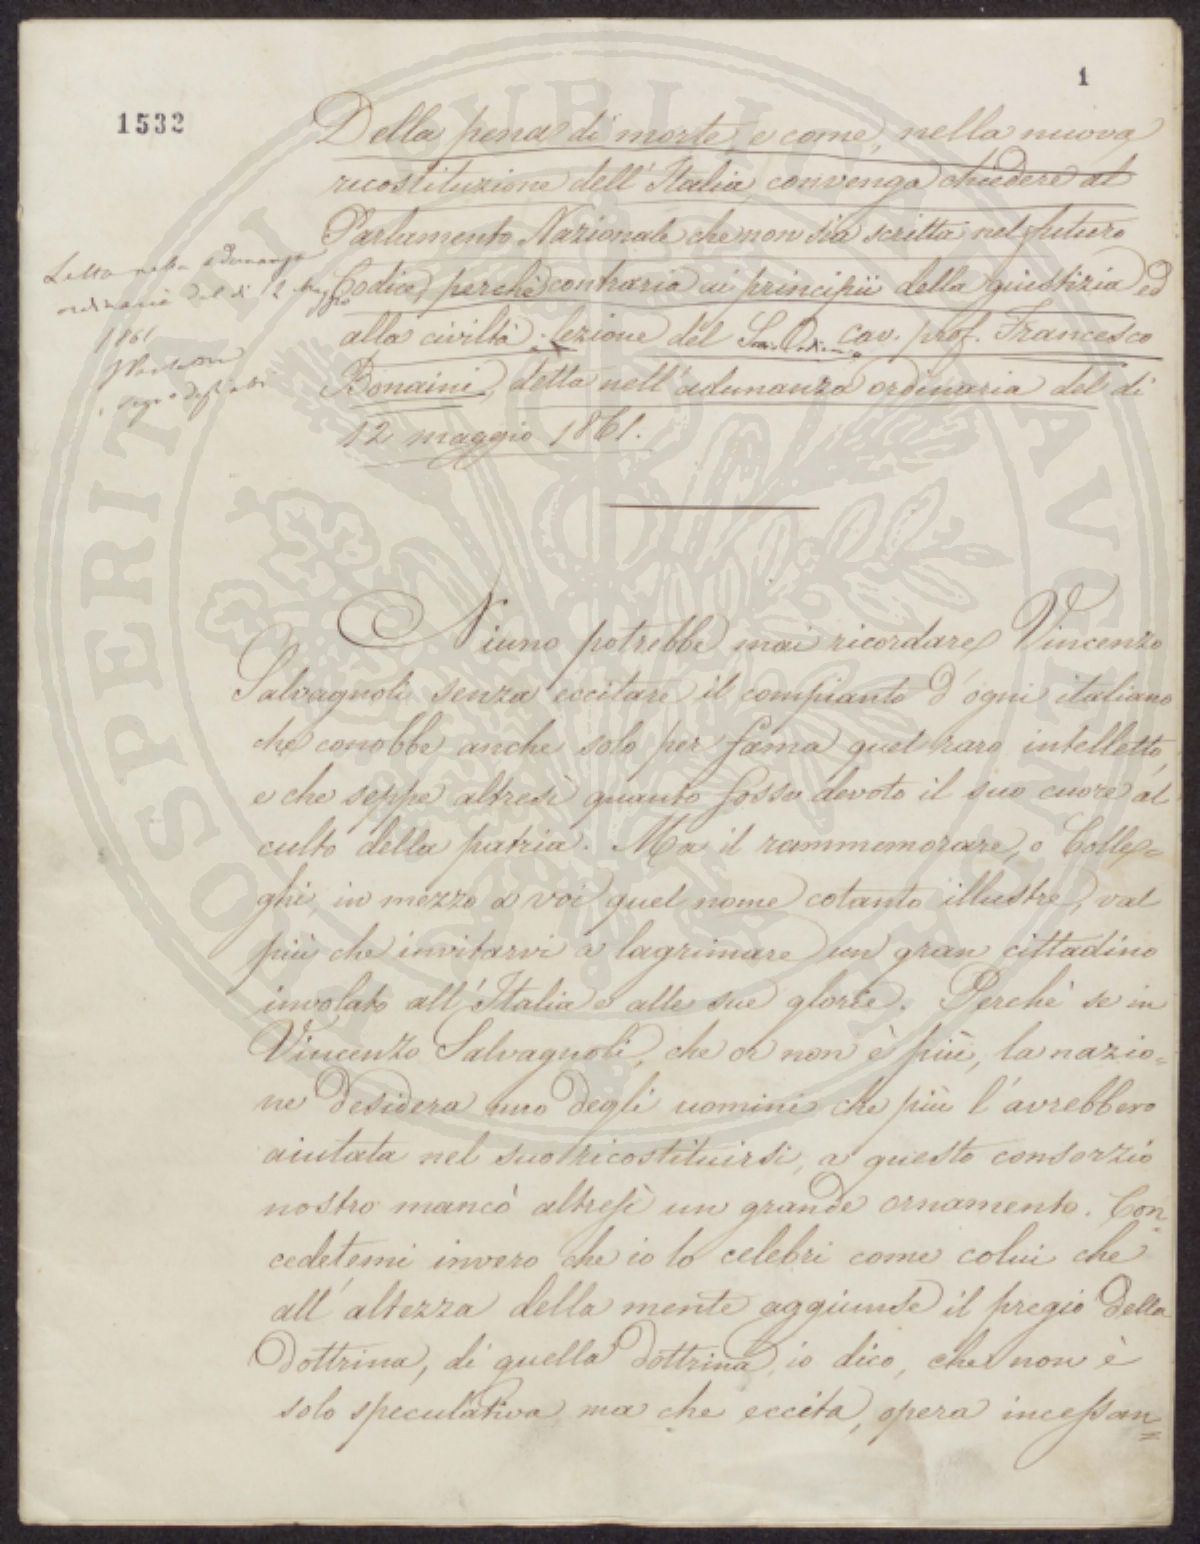 1
1532
Della pena di morte, e come, nella nuova
ricostituzione dell'Italia, convenga chiedere al
Parlamento Nazionale che non sia scritta nel futuro
Codice, perchè contraria ai principii della giustizia ed
alla civiltà: lezione del S. O. cav. prof. Francesco
Bonaini, detta nell'adunanza ordinaria del dì
12 maggio 1861.
Letta nella adunanza
ordinaria del dì 12 Maggio
1861
Segr.o degli atti
Niuno potrebbe mai ricordare Vincenzo
Salvagnoli senza eccitare il compianto d'ogni italiano
che conobbe anche solo per fama quel raro intelletto,
e che seppe altresì quanto fosse devoto il suo cuore al
culto della patria. Ma il rammemorare, o Colle=
ghi, in mezzo a voi quel nome cotanto illustre, val
più che invitarvi a lagrimare un gran cittadino
involato all'Italia e alle sue glorie. Perchè se in
Vincenzo Salvagnoli, che or non è più, la nazio=
ne desidera uno degli uomini che più l'avrebbero
aiutata nel suo ricostituirsi, a questo consorzio
nostro mancò altresì un grande ornamento. Con=
cedetemi invero che io lo celebri come colui che
all'altezza della mente aggiunse il pregio della
dottrina, di quella dottrina, io dico, che non è
solo speculativa ma che eccita, opera incessan=
SOSPERITATI PVBLICAE AVGENDAE